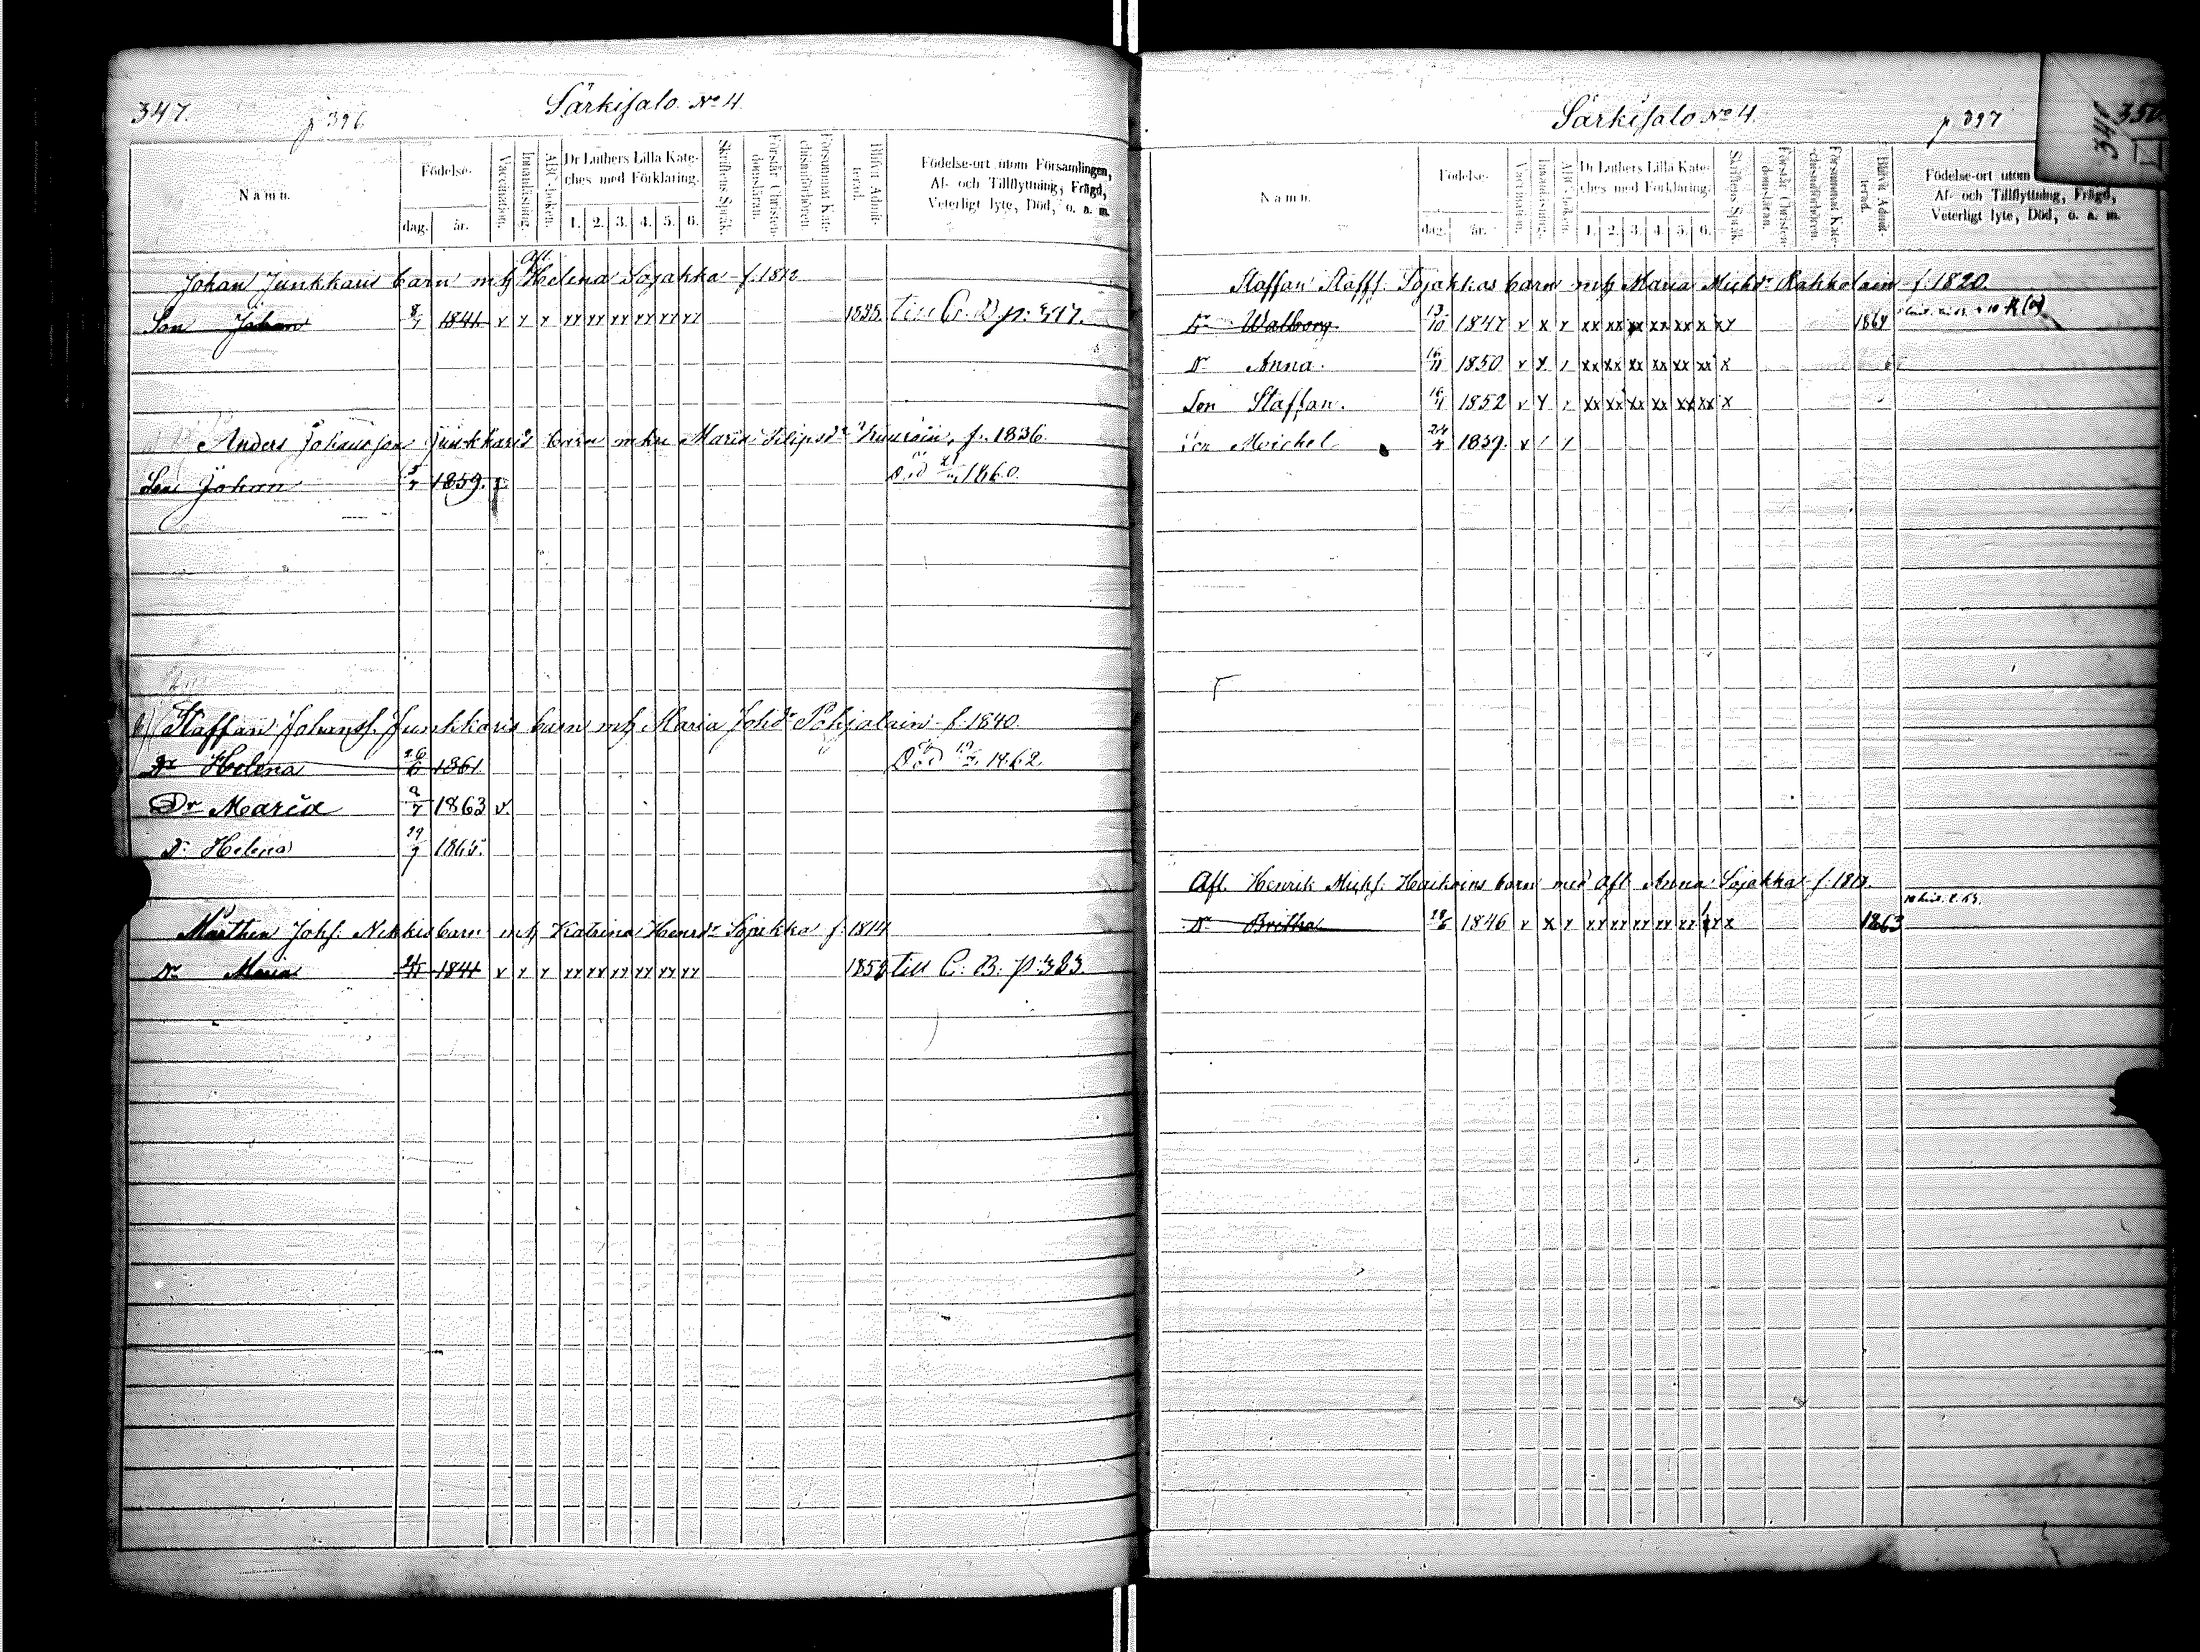 347.
p 396
Särkisalo. No 4.
Namn.
Födelse-
dag.
år.
Vaccination.
Innanläsning.
ABC-boken.
Dr Luthers Lilla Kate-
ches med Förklaring.
1. 2. 3. 4. 5. 6.
Skriftens Språk.
Förstår Christen-
domsläran.
Försummat Kate-
chismiförhören.
Blifvit Admit-
terad.
Födelse-ort utom Församlingen,
Af- och Tillflyttning, Frägd,
Veterligt lyte, Död, o. s. m.
Afl.
Johan Junkkaris barn mh Helena Sojakka f. 1812
Son Johan 8/7 1841 v x x xx xx xx xx xx xx till C. B. p: 317.
Anders Johansson Junkkaris barn m hu Maria Filipsdr f. 1836.
Son Johan 1859. Död 1860.
Staffan Johanss. Junkkaris barn mh Maria Johdr Pohjalain f. 1840.
Dr Helena 1861 Död 1862.
Dr Maria 1863 v.
Dr Helena 1865.
Marthin Johs. Nikkis barn mh Katrina Henrdr Sojakka f. 1814
Dr Maria 1841 v x x xx xx xx xx xx xx till C. B. p: 383.
Särkisalo No 4.
p 397
341
350
Namn.
Födelse-
dag.
år.
Vaccination.
Innanläsning.
ABC-boken.
Dr Luthers Lilla Kate-
ches med Förklaring.
1. 2. 3. 4. 5. 6.
Skriftens Språk.
Förstår Christen-
domsläran.
Försummat Kate-
chismiförhören.
Blifvit Admit-
terad.
Födelse-ort utom
Af- och Tillflyttning, Frägd,
Veterligt lyte, Död, o. s. m.
Staffan Staffs. Sojakkas barn mh Maria Michdr Rahkolain f. 1820.
Dr Walborg 13/10 1847 v x x xx xx xx xx xx x xx 1864
Dr Anna. 1850 v x x xx xx xx xx xx xx x
Son Staffan. 1852 v x x xx xx xx xx xx xx x
Son Michel 1859. v / /
Afl. Henrik Michs. Heikoins barn med afl. Anna Sojakka f.
Dr Britha 1846 v x x xx xx xx xx xx xx x 1863